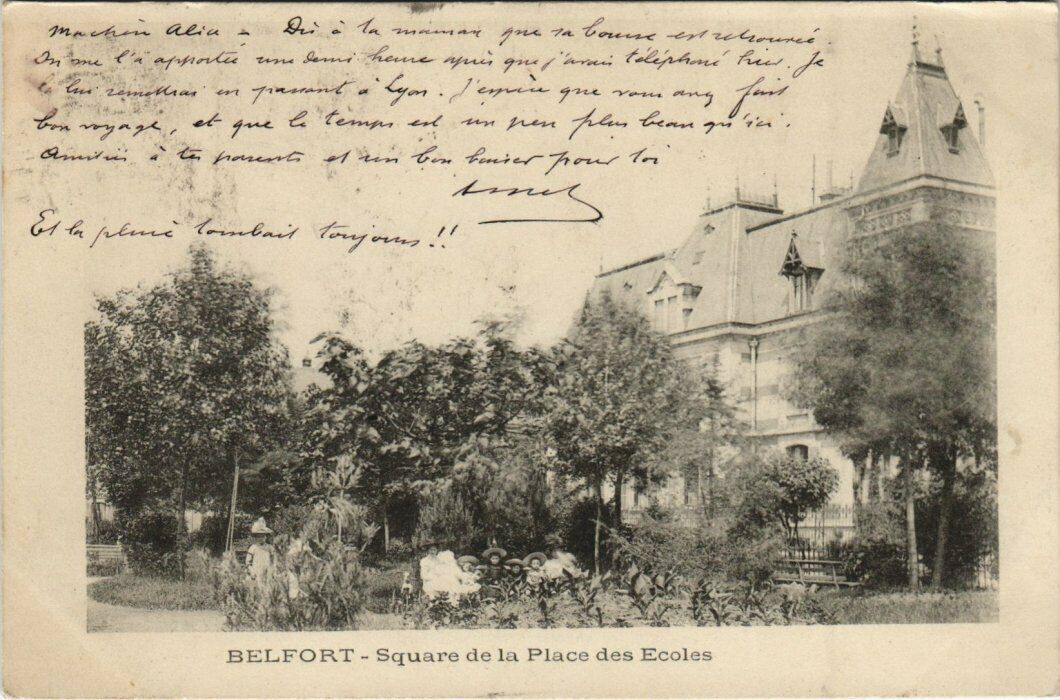 Ma chère Alia - Dis à ta maman que sa bourse est retrouvée.
On me l'a apportée une demi heure après que j'avais téléphoné hier. Je
la lui remettrai en passant à Lyon. J'espère que vous avez fait
bon voyage, et que le temps est un peu plus beau qu'ici.
Amitiés à tes parents et un bon baiser pour toi
Et la pluie tombait toujours!!
BELFORT - Square de la Place des Ecoles